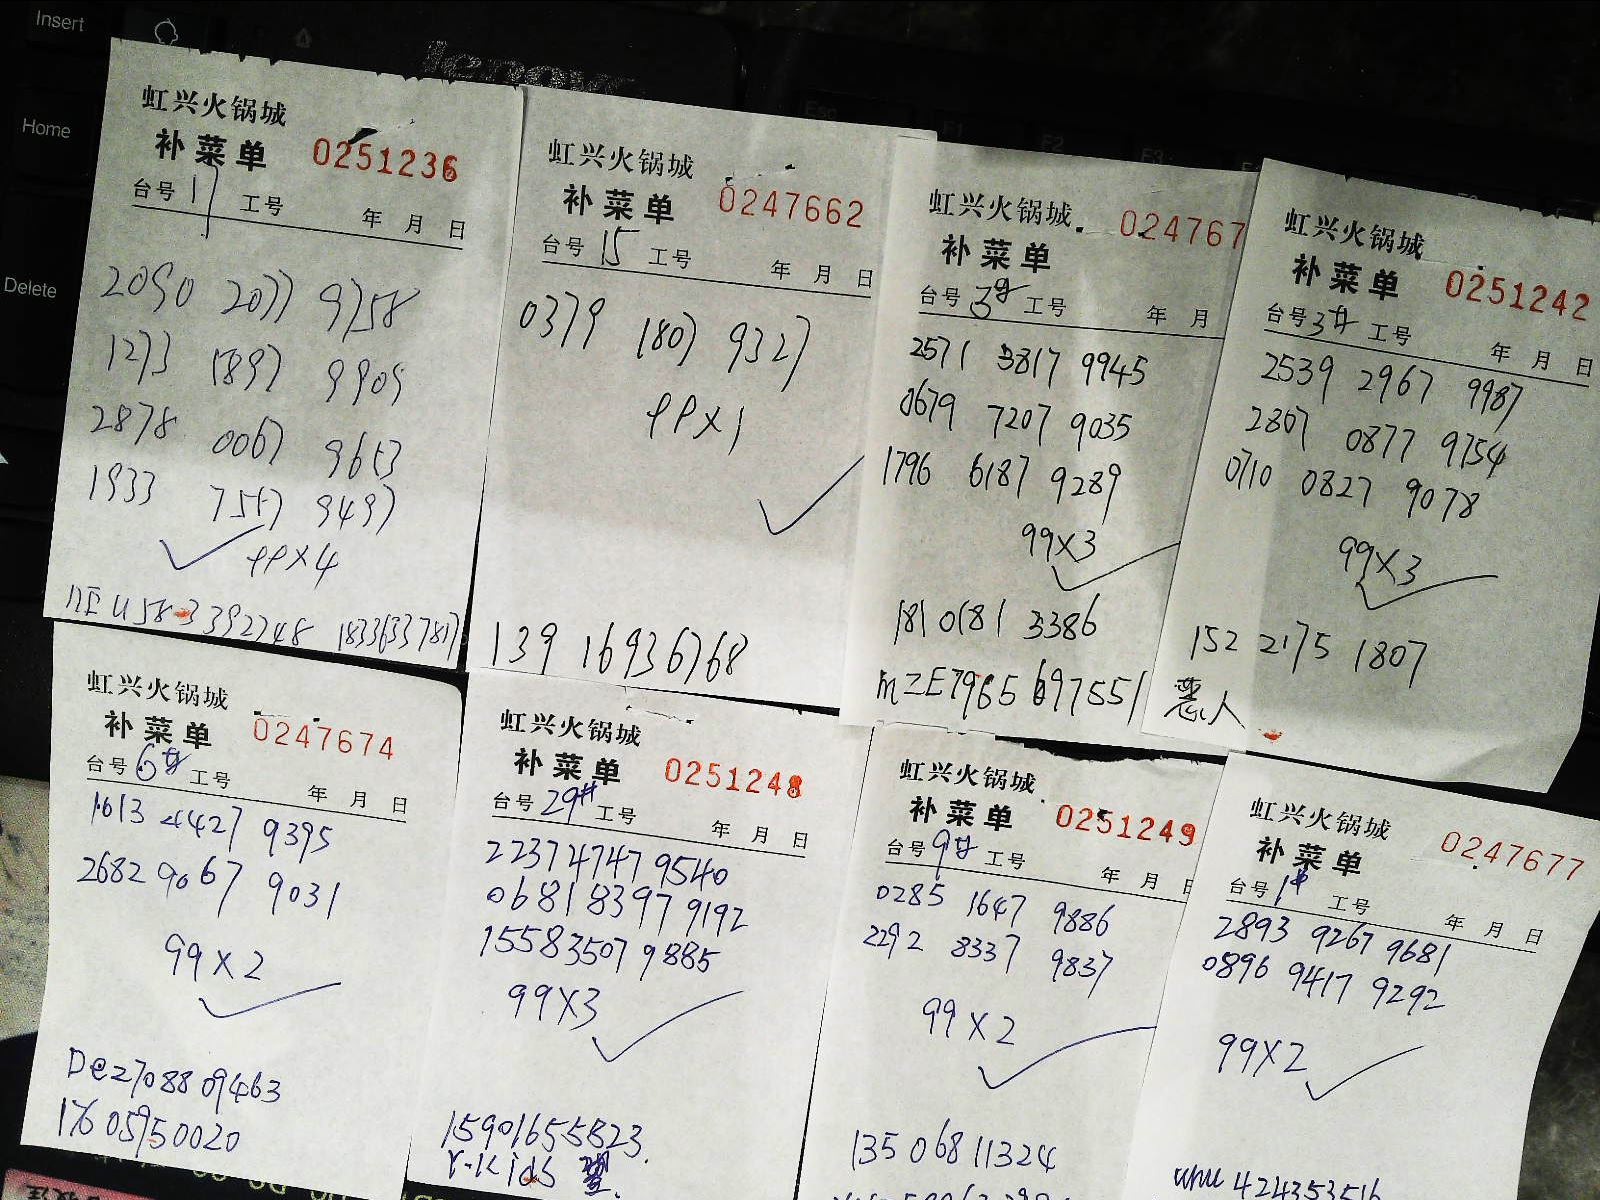 Insert
Home
Delete
lenovo
虹兴火锅城
补菜单 0251236
台号 17 工号 年 月 日
2090 2077 9758
1273 1897 9909
2878 0067 9613
1933 7517 9497
99×4
18336337817
虹兴火锅城
补菜单 0247662
台号 15 工号 年 月 日
0379 1807 9327
99×1
139 16936768
虹兴火锅城
补菜单 024767
台号 3# 工号 年 月
2571 3817 9945
0679 7207 9035
1796 6187 9289
99×3
181 0181 3386
mZE7965697551
虹兴火锅城
补菜单 0251242
台号 3# 工号 年 月 日
2539 2967 9987
2807 0877 9754
0710 0827 9078
99×3
152 2175 1807
恶人
虹兴火锅城
补菜单 0247674
台号 6# 工号 年 月 日
1613 4427 9395
2682 9067 9031
99×2
Dez708809463
17605950020
虹兴火锅城
补菜单 0251248
台号 29# 工号 年 月 日
2237 4747 9540
0681 8397 9192
1558 3507 9885
99×3
15901655823.
Y-Kids
虹兴火锅城
补菜单 0251249
台号 9# 工号 年 月 日
0285 1647 9886
2292 8337 9837
99×2
135 068 11324
虹兴火锅城
补菜单 0247677
台号 1# 工号 年 月 日
2893 9267 9681
0896 9417 9292
99×2
whu 424353516